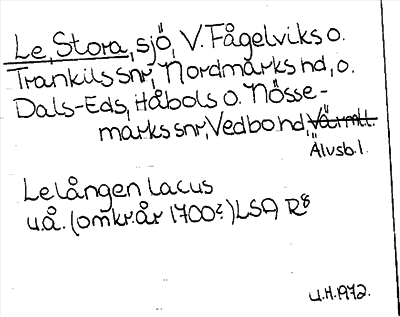 Le, Stora, sjö, V. Fågelviks o.
Trankils snr, Nordmarks hd, o.
Dals-Eds, Håbols o. Nösse-
marks snr, Vedbo hd, Värml.
Älvsb.l.
Lelången lacus
u.å. (omkr. år 1700?) LSA R8
U.H. 1972.